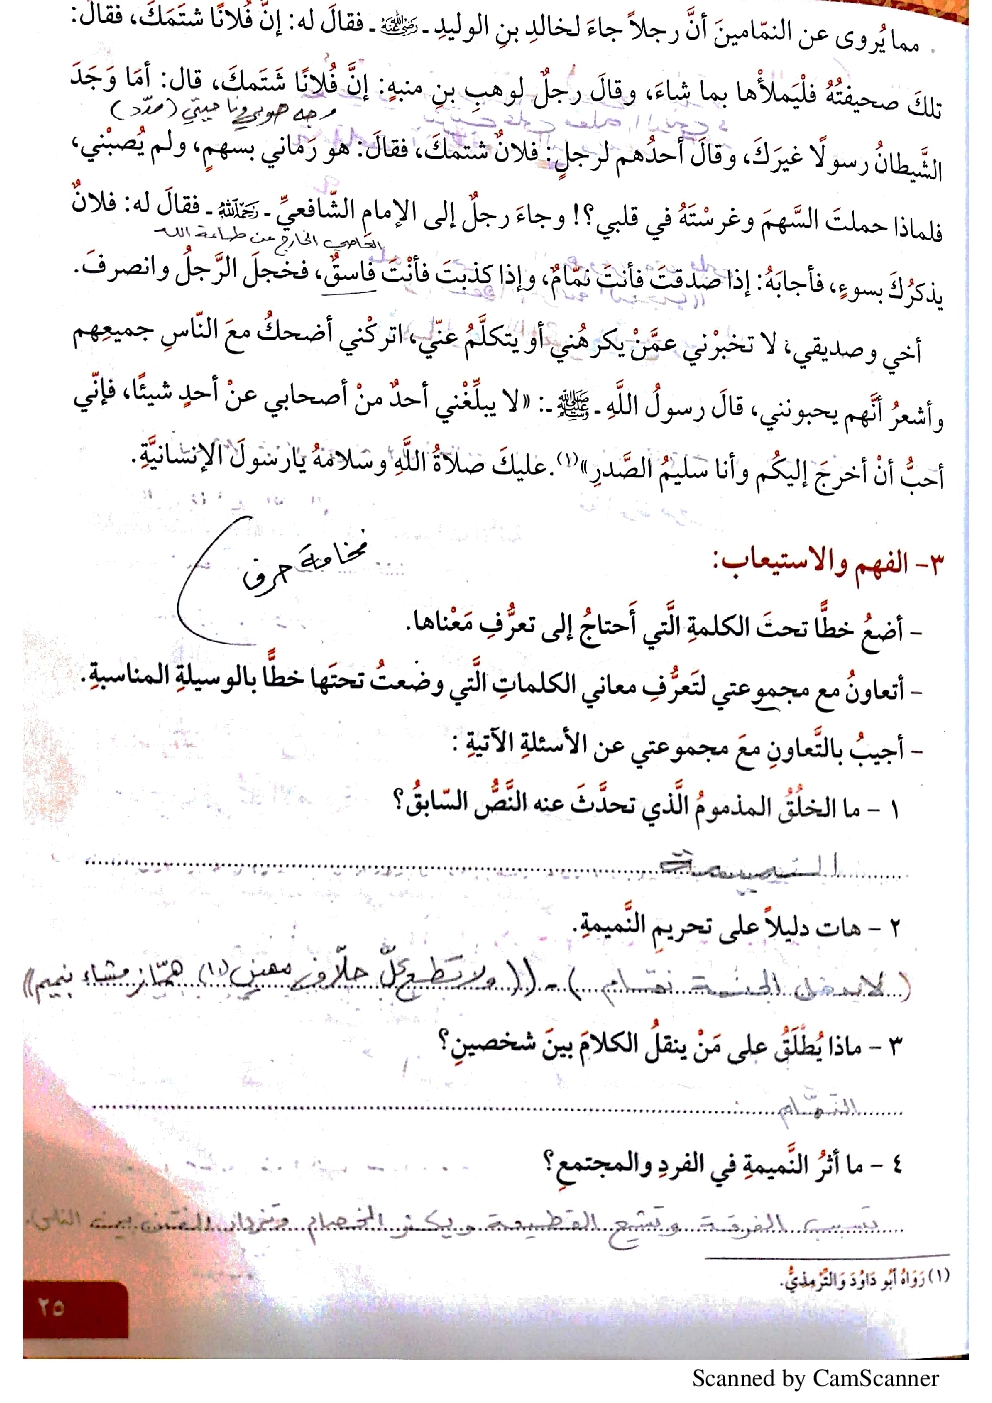 مما يُروى عن النمّامينَ أنَّ رجلاً جاءَ لخالدِ بنِ الوليدِ ـ رضي الله عنه ـ فقالَ له: إنَّ فُلانًا شتَمكَ، فقالَ:
تلكَ صحيفتُهُ فلْيَملأْها بما شاءَ، وقالَ رجلٌ لوهبِ بنِ منبهٍ: إنَّ فُلانًا شَتَمكَ، قال: أمَا وَجَدَ
وجه صوبي
الشَّيطانُ رسولًا غيرَكَ، وقالَ أحدُهم لرجلٍ: فلانٌ شتمكَ، فقالَ: هو رَماني بسهمٍ، ولم يُصبْني،
فلماذا حملتَ السَّهمَ وغرسْتَهُ في قلبي؟! وجاءَ رجلٌ إلى الإمامِ الشّافعيِّ ـ رحمه الله ـ فقالَ له: فلانٌ
العاصي الخارج عن طاعة الله
يذكرُكَ بسوءٍ، فأجابَهُ: إذا صدقتَ فأنتَ نمّامٌ، وإذا كذبتَ فأنْتَ فاسقٌ، فخجلَ الرَّجلُ وانصرفَ.
أخي وصديقي، لا تخبرْني عمَّنْ يكرهُني أو يتكلَّمُ عنّي، اتركْني أضحكُ معَ النّاسِ جميعِهم
وأشعرُ أنَّهم يحبونني، قالَ رسولُ اللَّهِ ـ ﷺ ـ: «لا يبلِّغْني أحدٌ منْ أصحابي عنْ أحدٍ شيئًا، فإنّي
أحبُّ أنْ أخرجَ إليكُم وأنا سليمُ الصَّدرِ»(١). عليكَ صلاةُ اللَّهِ وسلامهُ يارسولَ الإنسانيَّةِ.
فخامة حرف
٣- الفهم والاستيعاب:
- أضعُ خطًّا تحتَ الكلمةِ الَّتي أَحتاجُ إلى تعرُّفِ مَعْناها.
- أتعاونُ مع مجموعتي لتَعرُّفِ معاني الكلماتِ الَّتي وضعتُ تحتَها خطًّا بالوسيلةِ المناسبةِ.
- أجيبُ بالتَّعاونِ معَ مجموعتي عن الأسئلةِ الآتيةِ:
١ - ما الخلُقُ المذمومُ الَّذي تحدَّثَ عنه النَّصُّ السّابقُ؟
النميمة
٢ - هات دليلاً على تحريمِ النَّميمةِ.
(لا يدخل الجنة نمام) - ((ولا تطع كلّ حلّاف مهين (١٠) همّاز مشاء بنميم))
٣ - ماذا يُطْلَقُ على مَنْ ينقلُ الكلامَ بينَ شخصينِ؟
النمّام
٤ - ما أثرُ النَّميمةِ في الفردِ والمجتمعِ؟
تسبب الفرقة وتشيع القطيعة ويكثر الخصام وتزداد الفتن بين الناس.
(١) رَوَاهُ أَبُو دَاوُدَ وَالتِّرْمِذِيُّ.
٢٥
Scanned by CamScanner